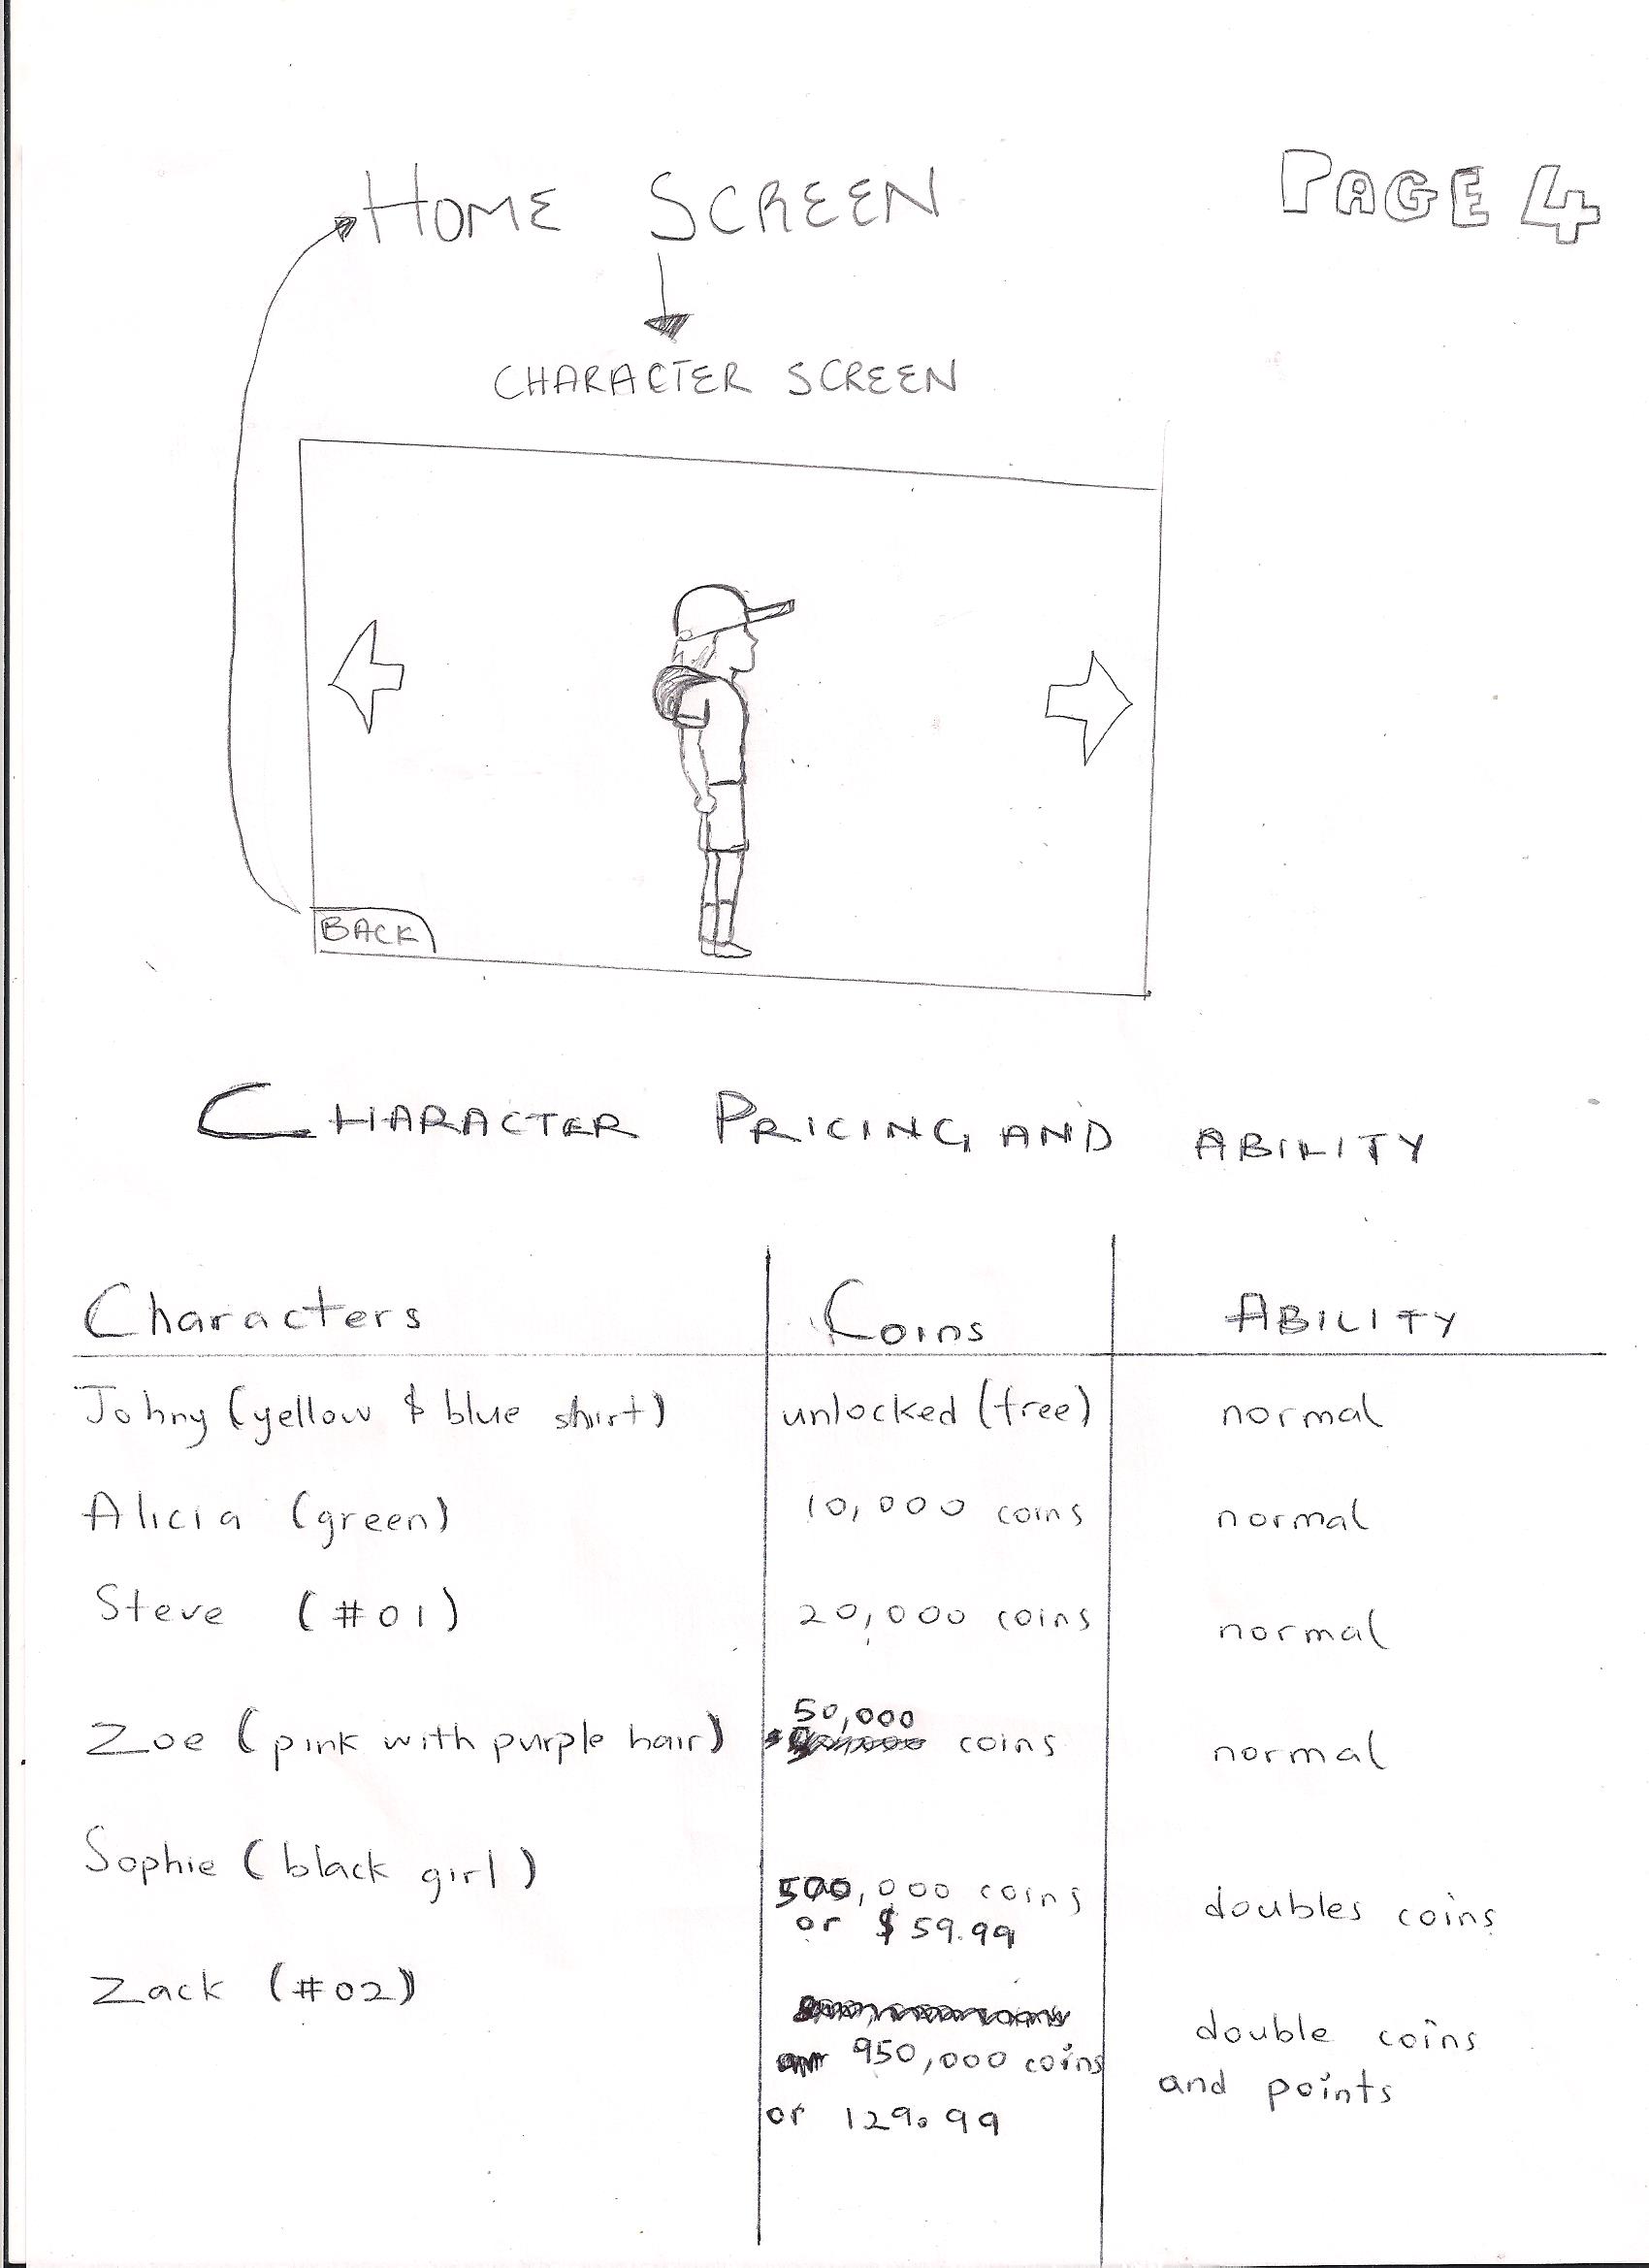 HOME SCREEN
PAGE 4
CHARACTER SCREEN
BACK
CHARACTER PRICING AND ABILITY
Characters Coins ABILITY
Johny (yellow & blue shirt) unlocked (free) normal
Alicia (green) 10,000 coins normal
Steve (#01) 20,000 coins normal
50,000
Zoe (pink with purple hair) coins normal
Sophie (black girl)
500,000 coins doubles coins
or $59.99
Zack (#02)
double coins
950,000 coins
and points
or 129.99